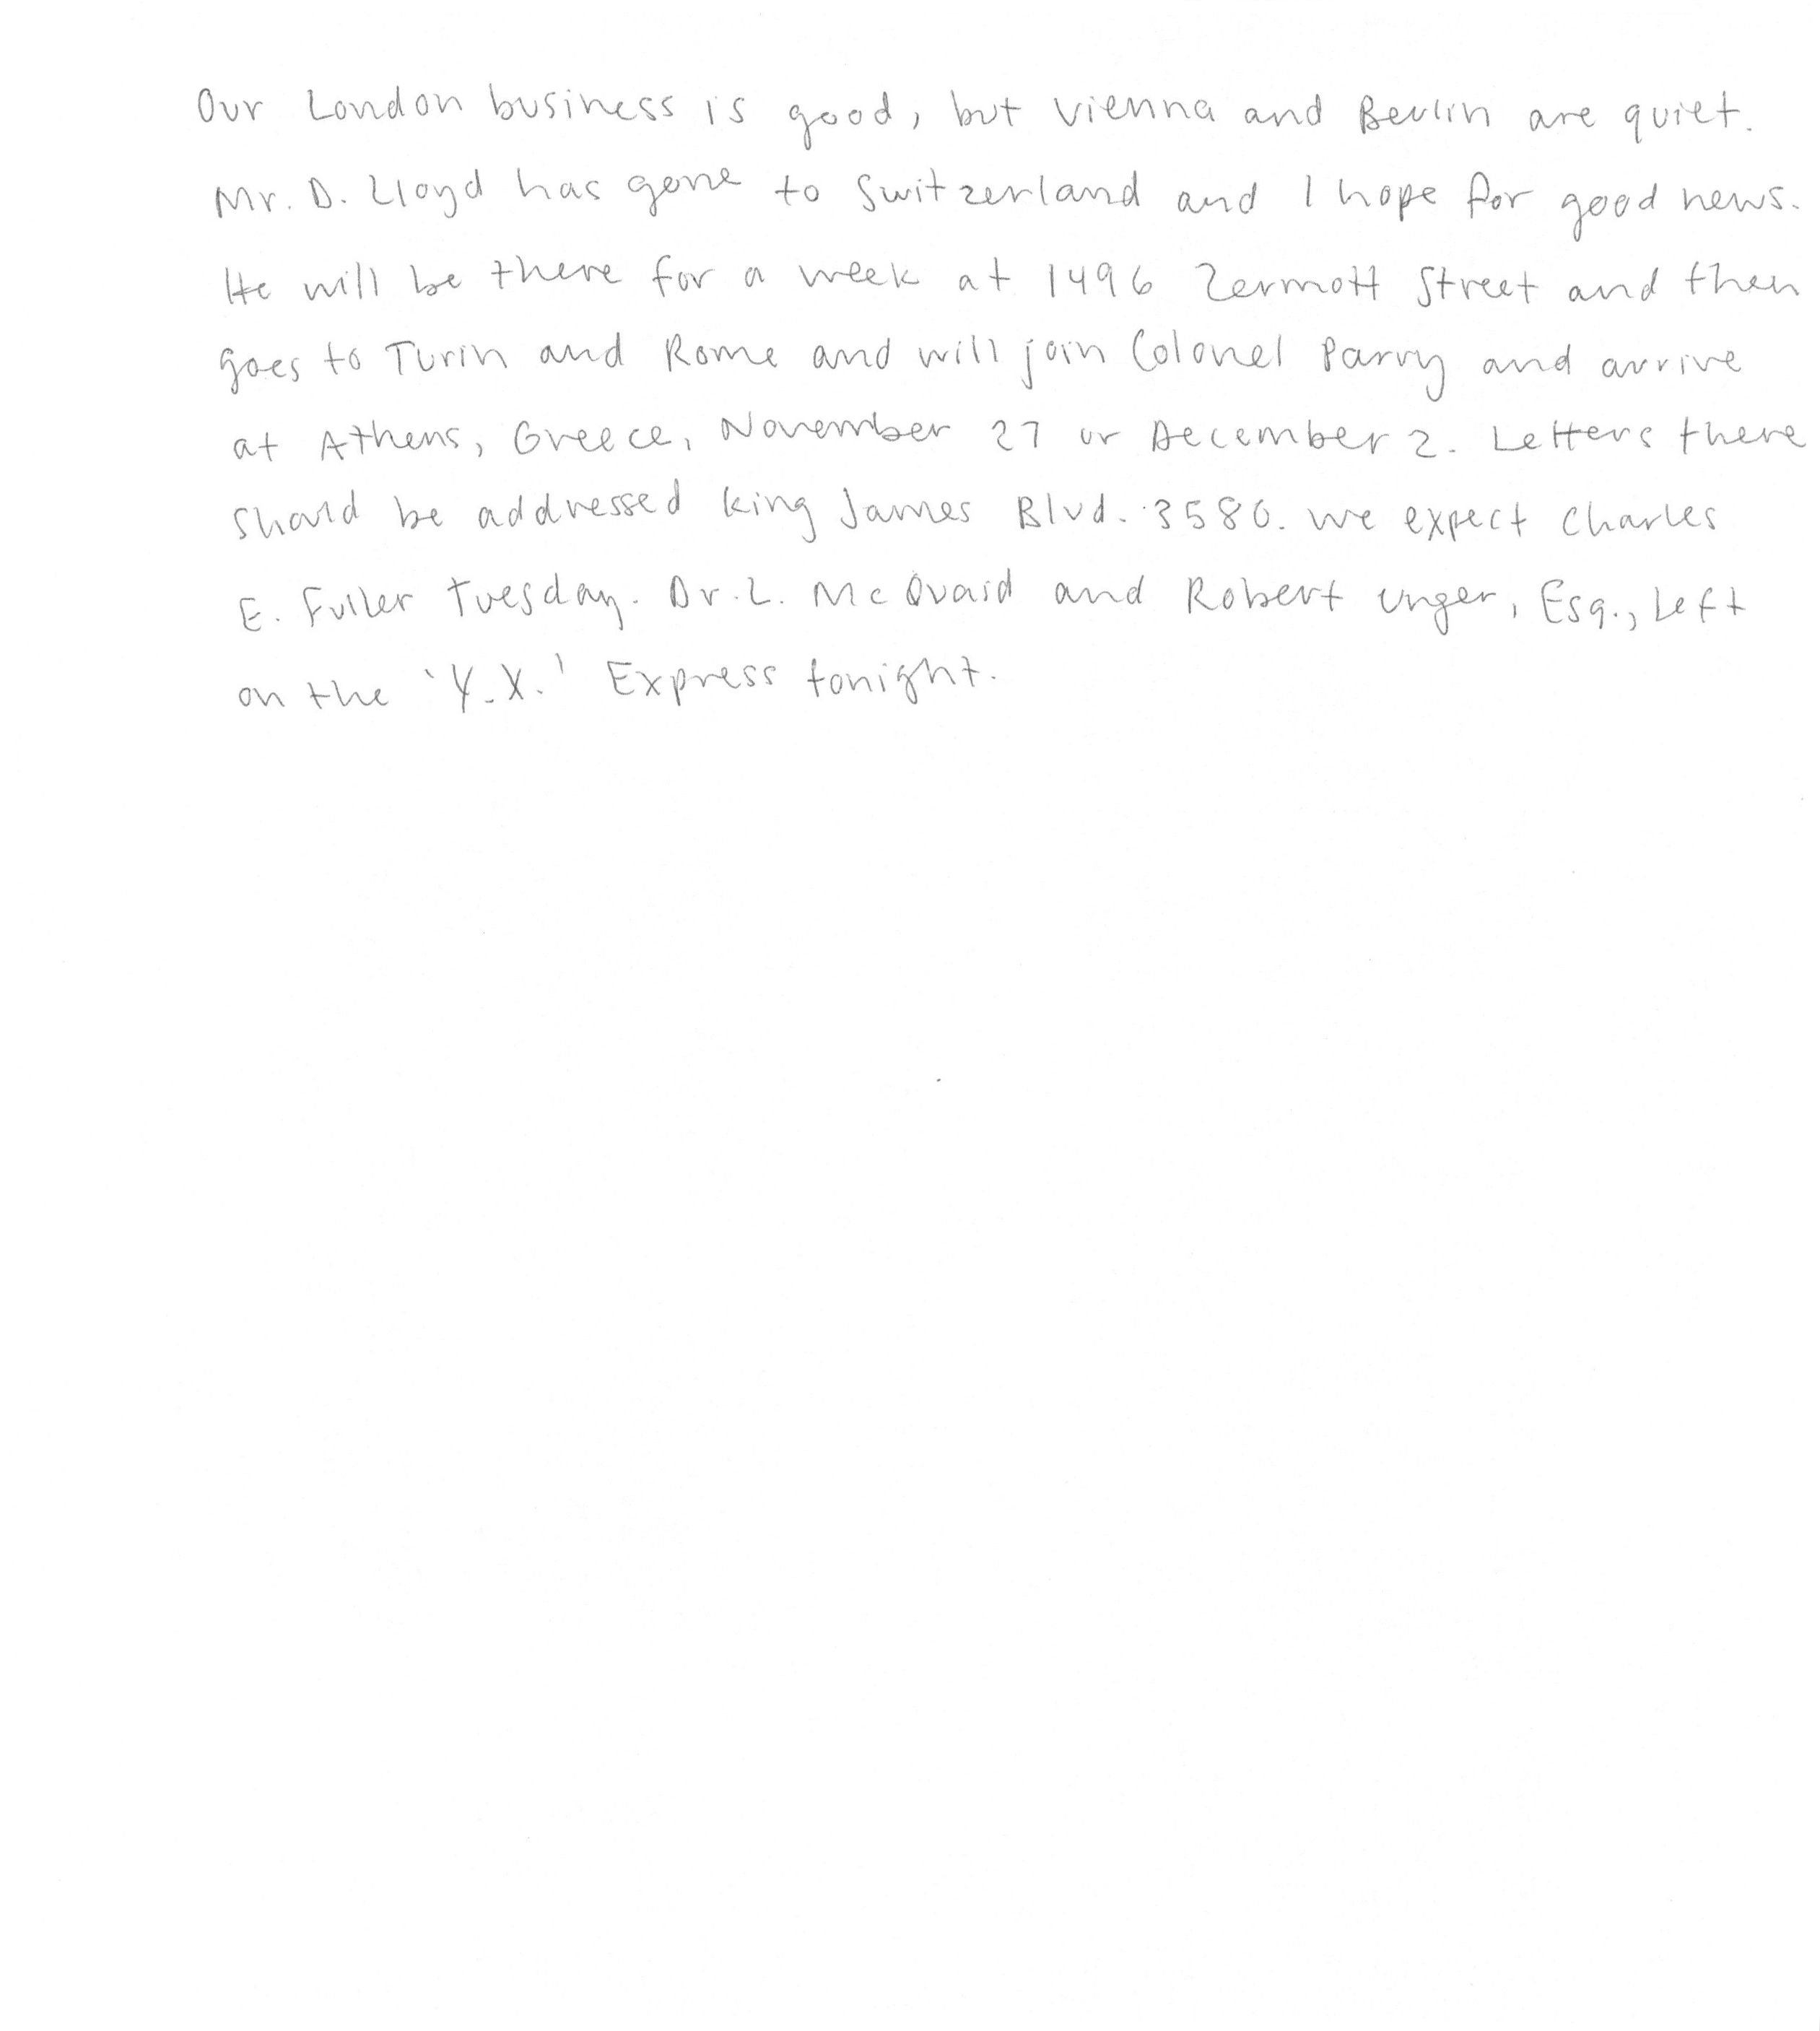 Our London business is good, but Vienna and Berlin are quiet.
Mr. D. Lloyd has gone to Switzerland and I hope for good news.
He will be there for a week at 1496 Zermott Street and then
goes to Turin and Rome and will join Colonel Parry and arrive
at Athens, Greece, November 27 or December 2. Letters there
should be addressed King James Blvd. 3580. We expect Charles
E. Fuller Tuesday. Dr. L. McQuaid and Robert Unger, Esq., Left
on the 'Y.X.' Express tonight.